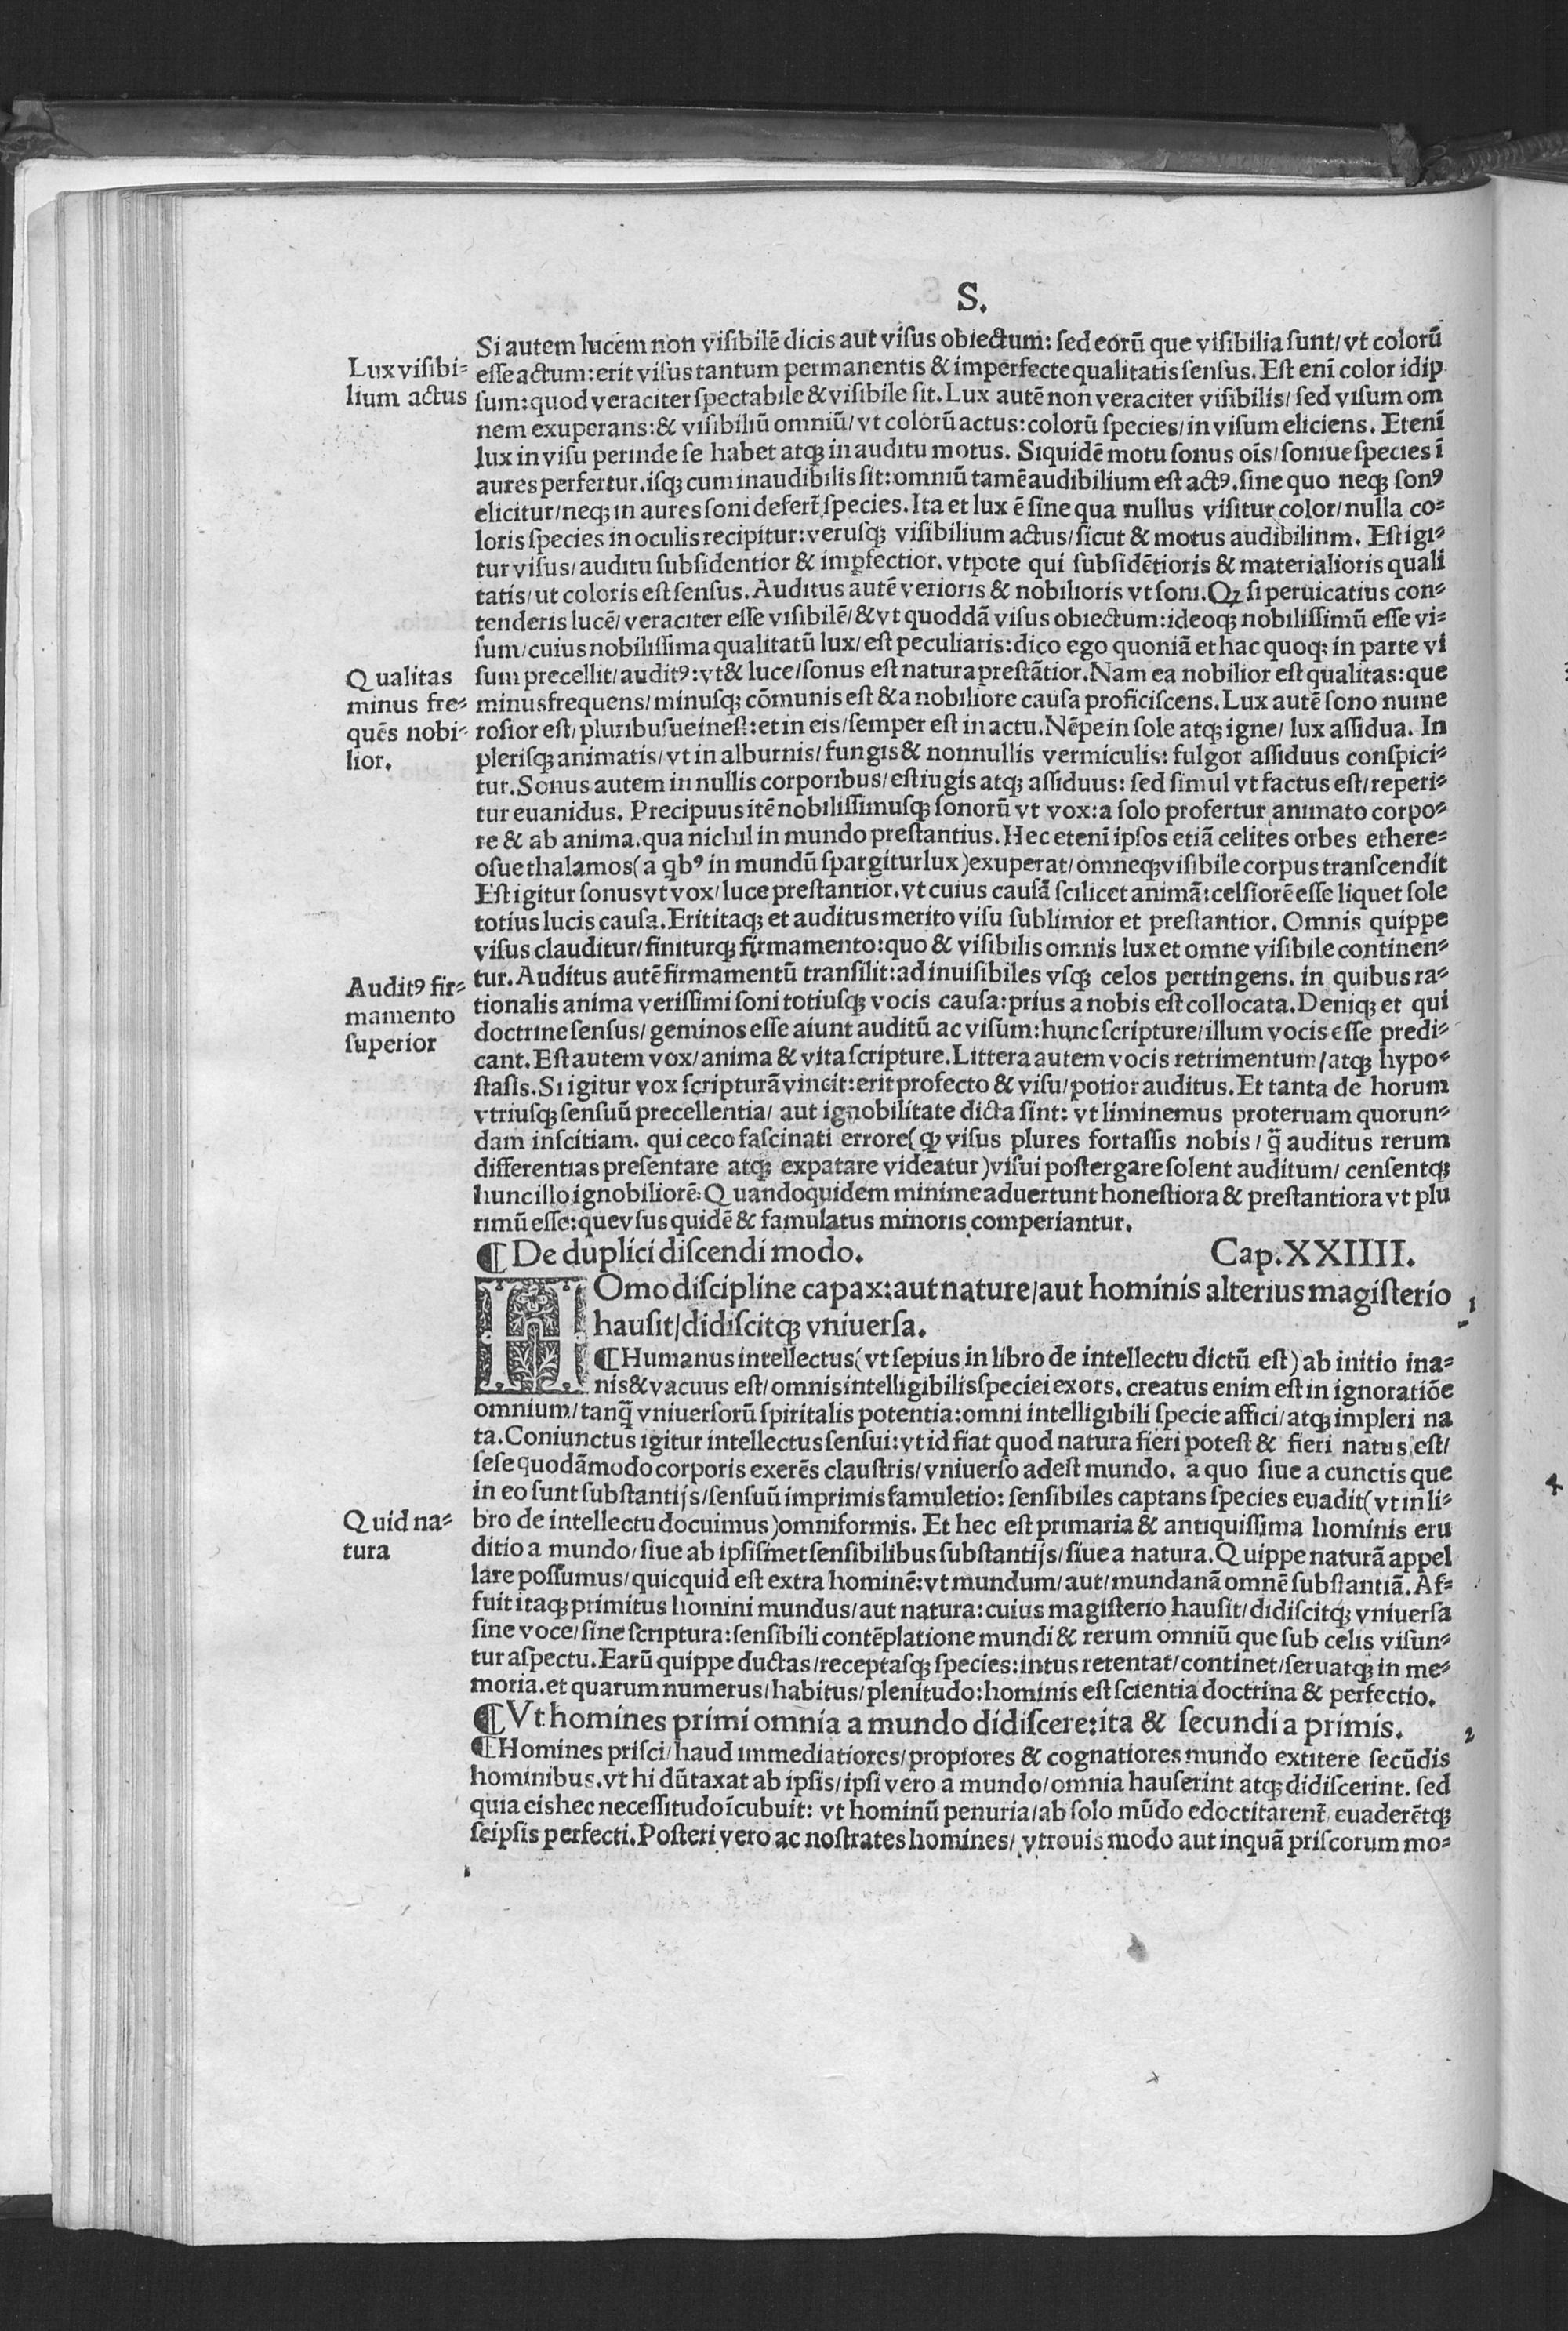 S.
Si autem lucem non visibilē dicis aut visus obiectum: sed eorū que visibilia sunt/ vt colorū
Lux visibi-
lium actus
esse actum: erit visus tantum permanentis & imperfecte qualitatis sensus. Est enī color idip
sum: quod veraciter spectabile & visibile sit. Lux autē non veraciter visibilis/ sed visum om
nem exuperans: & visibiliū omniū/ vt colorū actus: colorū species/ in visum eliciens. Etenī
lux in visu perinde se habet atqꝫ in auditu motus. Siquidē motu sonus oīs/ soniue species ī
aures perfertur. isqꝫ cum inaudibilis sit: omniū tamē audibilium est actꝰ. sine quo neqꝫ sonꝰ
elicitur/ neqꝫ in aures soni defert̄ species. Ita et lux ē sine qua nullus visitur color/ nulla co-
loris species in oculis recipitur: verusqꝫ visibilium actus/ sicut & motus audibilinm. Est igi-
tur visus/ auditu subsidentior & imꝑfectior. vtpote qui subsidētioris & materialioris quali
tatis/ ut coloris est sensus. Auditus autē verioris & nobilioris vt soni. Qꝫ si peruicatius con-
tenderis lucē/ veraciter esse visibilē/ & vt quoddā visus obiectum: ideoqꝫ nobilissimū esse vi-
sum/ cuius nobilissima qualitatū lux/ est peculiaris: dico ego quoniā et hac quoqꝫ in parte vi
Qualitas
minus fre-
quēs nobi-
lior.
sum precellit/ auditꝰ: vt & luce/ sonus est natura prestātior. Nam ea nobilior est qualitas: que
minus frequens/ minusqꝫ cōmunis est & a nobiliore causa proficiscens. Lux autē sono nume
rosior est/ pluribusue inest: et in eis/ semper est in actu. Nēpe in sole atqꝫ igne/ lux assidua. In
plerisqꝫ animatis/ vt in alburnis/ fungis & nonnullis vermiculis: fulgor assiduus conspici-
tur. Sonus autem in nullis corporibus/ est iugis atqꝫ assiduus: sed simul vt factus est/ reperi-
tur euanidus. Precipuus itē nobilissimusqꝫ sonorū vt vox: a solo profertur animato corpo-
re & ab anima. qua nichil in mundo prestantius. Hec etenī ipsos etiā celites orbes ethere-
osue thalamos (a qbꝰ in mundū spargitur lux) exuperat/ omneqꝫ visibile corpus transcendit
Est igitur sonus vt vox/ luce prestantior. vt cuius causā scilicet animā: celsiorē esse liquet sole
totius lucis causa. Erit itaqꝫ et auditus merito visu sublimior et prestantior. Omnis quippe
visus clauditur/ finiturqꝫ firmamento: quo & visibilis omnis lux et omne visibile continen-
Auditꝰ fir-
mamento
superior
tur. Auditus autē firmamentū transilit: ad inuisibiles vsqꝫ celos pertingens. in quibus ra-
tionalis anima verissimi soni totiusqꝫ vocis causa: prius a nobis est collocata. Deniqꝫ et qui
doctrine sensus/ geminos esse aiunt auditū ac visum: hunc scripture/ illum vocis esse predi-
cant. Est autem vox/ anima & vita scripture. Littera autem vocis retrimentum/ atqꝫ hypo-
stasis. Si igitur vox scripturā vincit: erit profecto & visu/ potior auditus. Et tanta de horum
vtriusqꝫ sensuū precellentia/ aut ignobilitate dicta sint: vt liminemus proteruam quorun-
dam inscitiam. qui ceco fascinati errore (qꝫ visus plures fortassis nobis/ q̄ auditus rerum
differentias presentare atqꝫ expatare videatur) visui postergare solent auditum/ censentqꝫ
hunc illo ignobiliorē: Quandoquidem minime aduertunt honestiora & prestantiora vt plu
rimū esse: que vsus quidē & famulatus minoris comperiantur.
¶ De duplici discendi modo. Cap. XXIIII.
HOmo discipline capax: aut nature/ aut hominis alterius magisterio
hausit/ didiscitqꝫ vniuersa.
1
¶ Humanus intellectus (vt sepius in libro de intellectu dictū est) ab initio ina-
nis & vacuus est/ omnis intelligibilis speciei exors. creatus enim est in ignoratiōe
omnium/ tanq̄ vniuersorū spiritalis potentia: omni intelligibili specie affici/ atqꝫ impleri na
ta. Coniunctus igitur intellectus sensui: vt id fiat quod natura fieri potest & fieri natus est/
sese quodāmodo corporis exerēs claustris/ vniuerso adest mundo. a quo siue a cunctis que
in eo sunt substantijs/ sensuū imprimis famuletio: sensibiles captans species euadit (vt in li-
Quid na-
tura
bro de intellectu docuimus) omniformis. Et hec est primaria & antiquissima hominis eru
ditio a mundo/ siue ab ipsismet sensibilibus substantijs/ siue a natura. Quippe naturā appel
lare possumus/ quicquid est extra hominē: vt mundum/ aut/ mundanā omnē substantiā. Af-
fuit itaqꝫ primitus homini mundus/ aut natura: cuius magisterio hausit/ didiscitqꝫ vniuersa
sine voce/ sine scriptura: sensibili contēplatione mundi & rerum omniū que sub celis visun-
tur aspectu. Earū quippe ductas/ receptasqꝫ species: intus retentat/ continet/ seruatqꝫ in me-
moria. et quarum numerus/ habitus/ plenitudo: hominis est scientia doctrina & perfectio.
¶ Vt homines primi omnia a mundo didiscere: ita & secundi a primis.
2
¶ Homines prisci/ haud immediatiores/ propiores & cognatiores mundo extitere secūdis
hominibus. vt hi dūtaxat ab ipsis/ ipsi vero a mundo/ omnia hauserint atqꝫ didiscerint. sed
quia eis hec necessitudo īcubuit: vt hominū penuria/ ab solo mūdo edoctitarent̄/ euaderētqꝫ
seipsis perfecti. Posteri vero ac nostrates homines/ vtrouis modo aut inquā priscorum mo-
4